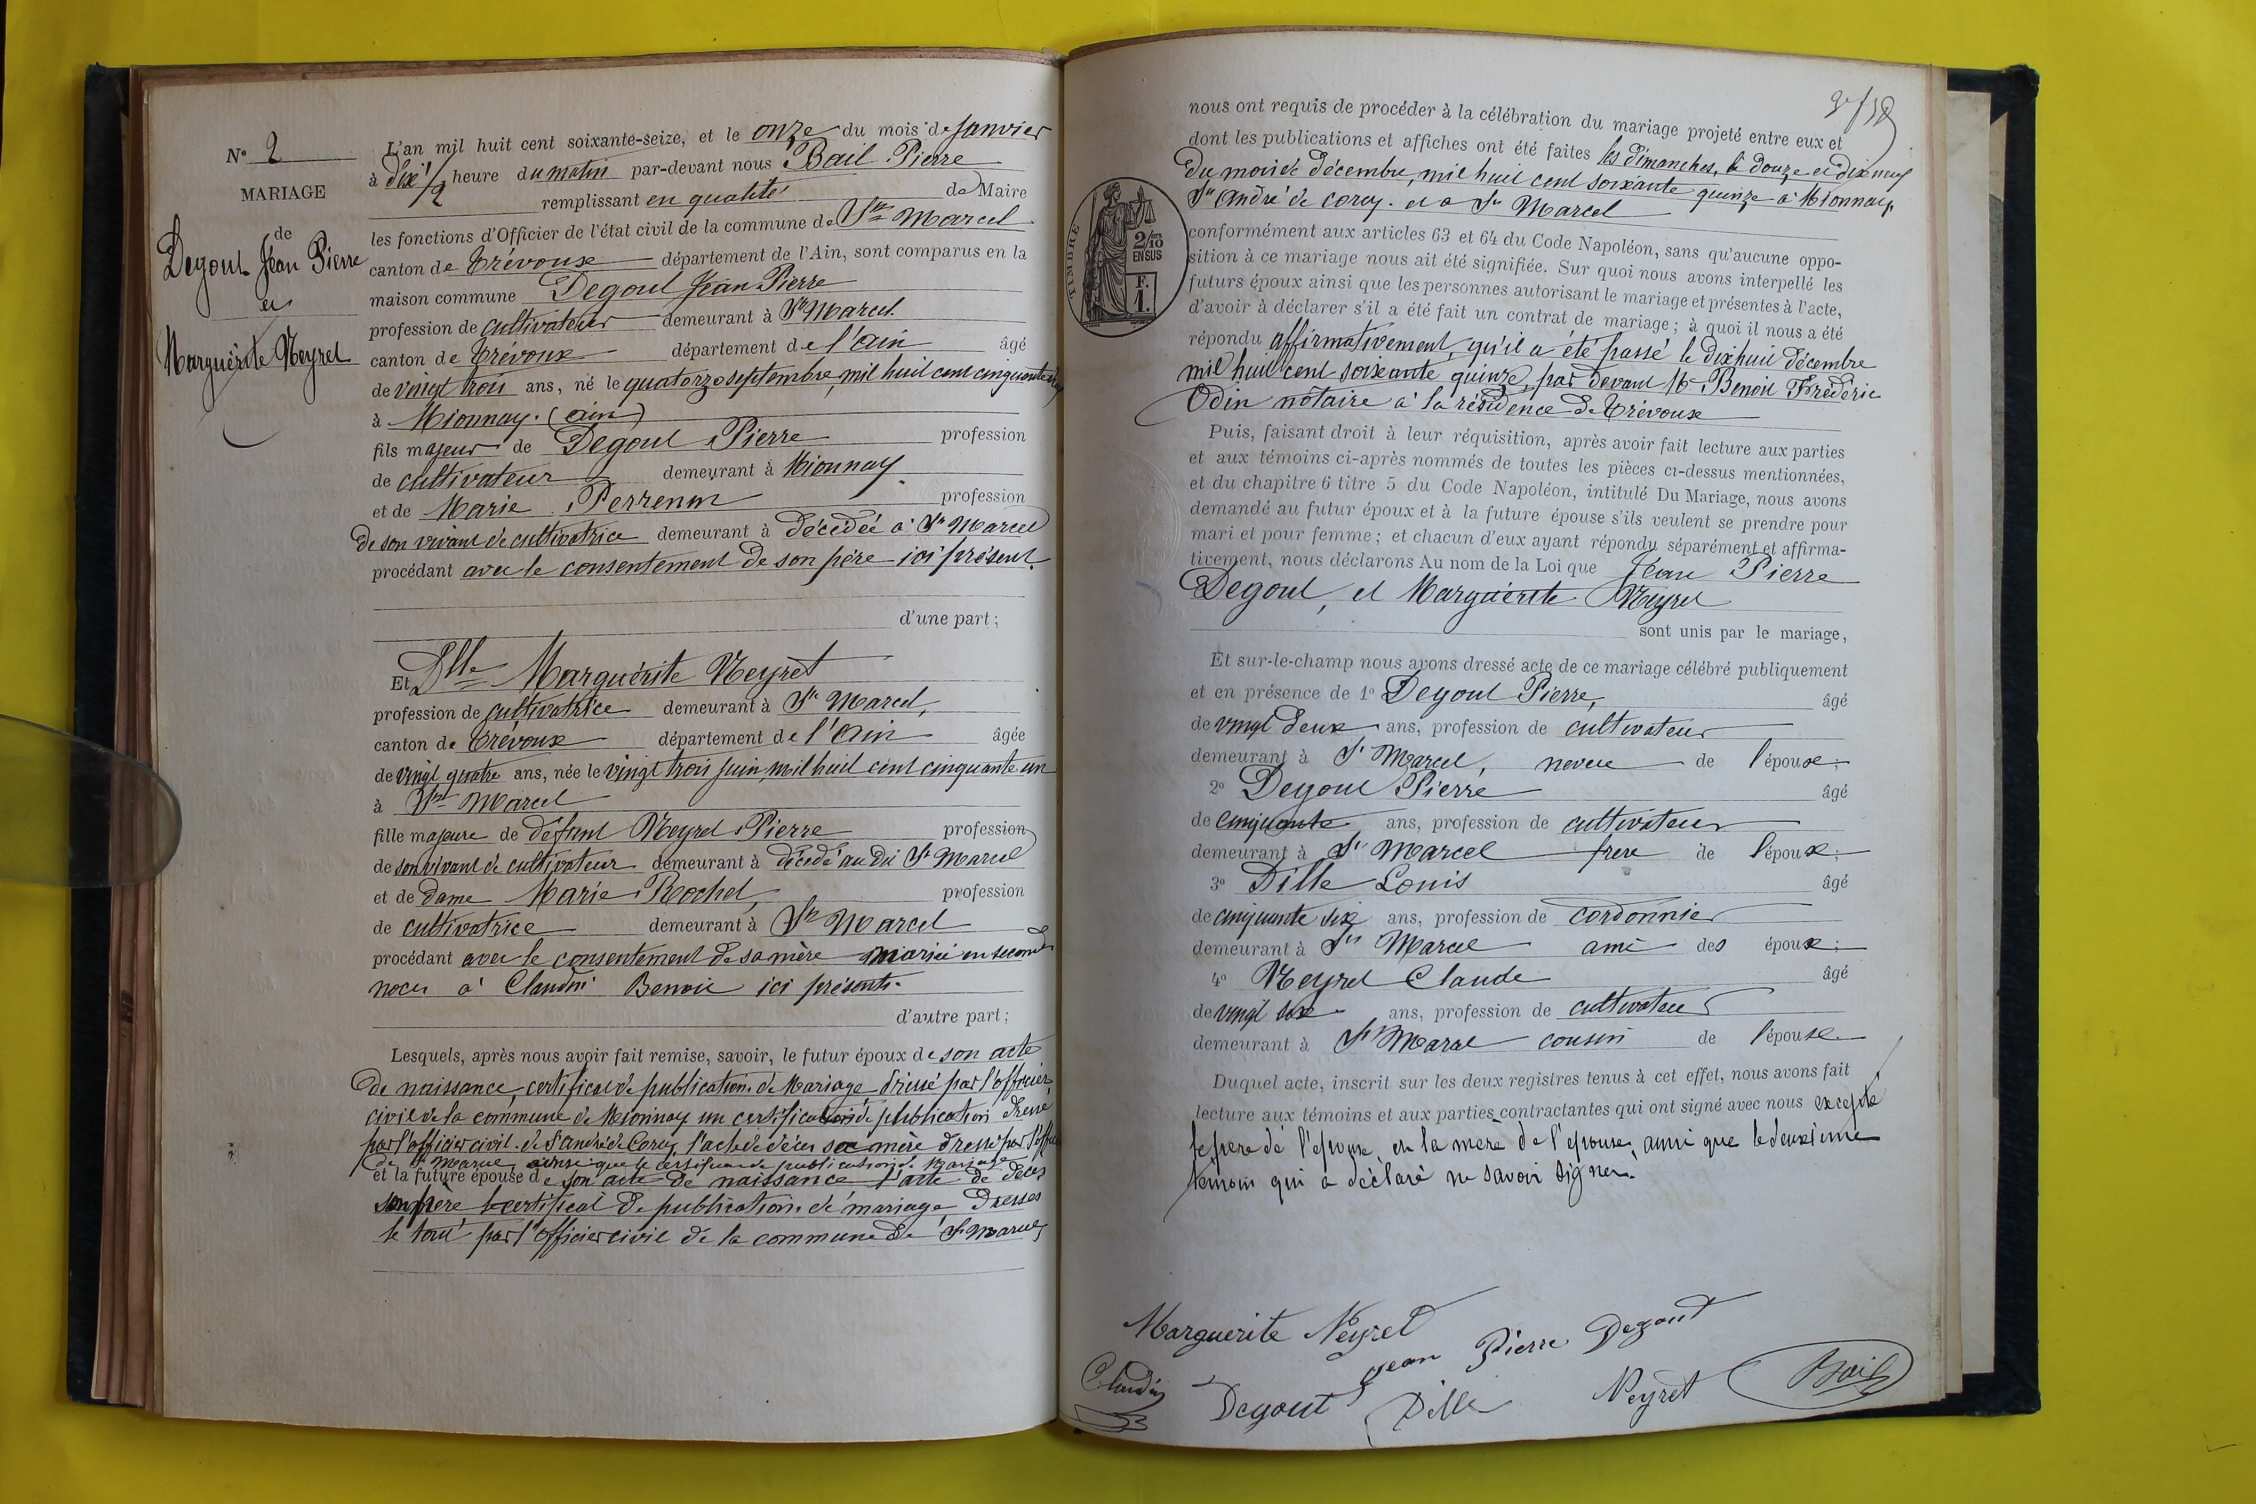 N° 2
MARIAGE
de
Degout Jean Pierre
et
Marguérite Neyret
L'an mil huit cent soixante-seize, et le onze du mois de Janvier
à dix 1/2 heure du matin par-devant nous Bail Pierre
remplissant en qualité de Maire
les fonctions d'Officier de l'état civil de la commune de St Marcel
canton de Trévoux département de l'Ain, sont comparus en la
maison commune Degout Jean Pierre
profession de cultivateur demeurant à St Marcel
canton de Trévoux département de l'ain âgé
de vingt trois ans, né le quatorze septembre mil huit cent cinquante
à Mionnay. (ain)
fils majeur de Degout Pierre profession
de cultivateur demeurant à Mionnay.
et de Marie Perrenin profession
de son vivant de cultivatrice demeurant à décédée à St Marcel
procédant avec le consentement de son père ici présent.
d'une part;
Et Dlle Marguérite Neyret
profession de cultivatrice demeurant à St Marcel,
canton de Trévoux département de l'Ain âgée
de vingt quatre ans, née le vingt trois juin mil huit cent cinquante un
à St Marcel
fille majeure de défunt Neyret Pierre profession
de son vivant de cultivateur demeurant à décédé au dit St Marcel
et de dame Marie Rochet, profession
de cultivatrice demeurant à St Marcel
procédant avec le consentement de sa mère mariée en second
noces à Claudin Benoit ici présents.
d'autre part;
Lesquels, après nous avoir fait remise, savoir, le futur époux de son acte
de naissance, certificat de publication de Mariage dressé par l'officier
civil de la commune de Mionnay un certificat de publication dressé
par l'officier civil de St André de Corcy, l'acte de décès sa mère dressé par l'offi
de St Marcel ainsi que le certificat de publication de Mariage
et la future épouse de son acte de naissance l'acte de décès
son père le certificat de publication de mariage dressés
le tout par l'officier civil de la commune de St Marcel
nous ont requis de procéder à la célébration du mariage projeté entre eux et
dont les publications et affiches ont été faites les dimanches, le douze et dix neuf
du mois de décembre, mil huit cent soixante quinze à Mionnay,
St André de corcy. et à St Marcel
TIMBRE
2/10 EN SUS
F. 1.
conformément aux articles 63 et 64 du Code Napoléon, sans qu'aucune oppo-
sition à ce mariage nous ait été signifiée. Sur quoi nous avons interpellé les
futurs époux ainsi que les personnes autorisant le mariage et présentes à l'acte,
d'avoir à déclarer s'il a été fait un contrat de mariage; à quoi il nous a été
répondu affirmativement, qu'il a été passé le dix huit décembre
mil huit cent soixante quinze, par devant Me Benoit Frédéric
Odin notaire à la résidence de Trévoux
Puis, faisant droit à leur réquisition, après avoir fait lecture aux parties
et aux témoins ci-après nommés de toutes les pièces ci-dessus mentionnées,
et du chapitre 6 titre 5 du Code Napoléon, intitulé Du Mariage, nous avons
demandé au futur époux et à la future épouse s'ils veulent se prendre pour
mari et pour femme; et chacun d'eux ayant répondu séparément et affirma-
tivement, nous déclarons Au nom de la Loi que Jean Pierre
Degout, et Marguérite Neyret
sont unis par le mariage,
Et sur-le-champ nous avons dressé acte de ce mariage célébré publiquement
et en présence de 1° Degout Pierre, âgé
de vingt deux ans, profession de cultivateur
demeurant à St Marcel, neveu de l'épouse;
2° Degout Pierre âgé
de cinquante ans, profession de cultivateur
demeurant à St Marcel frere de l'époux;
3° Dille Louis âgé
de cinquante six ans, profession de cordonnier
demeurant à St Marcel ami des époux;
4° Neyret Claude âgé
de vingt six ans, profession de cultivateur
demeurant à St Marcel cousin de l'épouse
Duquel acte, inscrit sur les deux registres tenus à cet effet, nous avons fait
lecture aux témoins et aux parties contractantes qui ont signé avec nous excepté
le pere de l'époux, et la mere de l'epouse, ainsi que le deuxième
témoin qui a déclaré ne savoir signer.
Marguerite Neyret
Jean Pierre Degout
Claudin
Degout Dille Neyret Bail